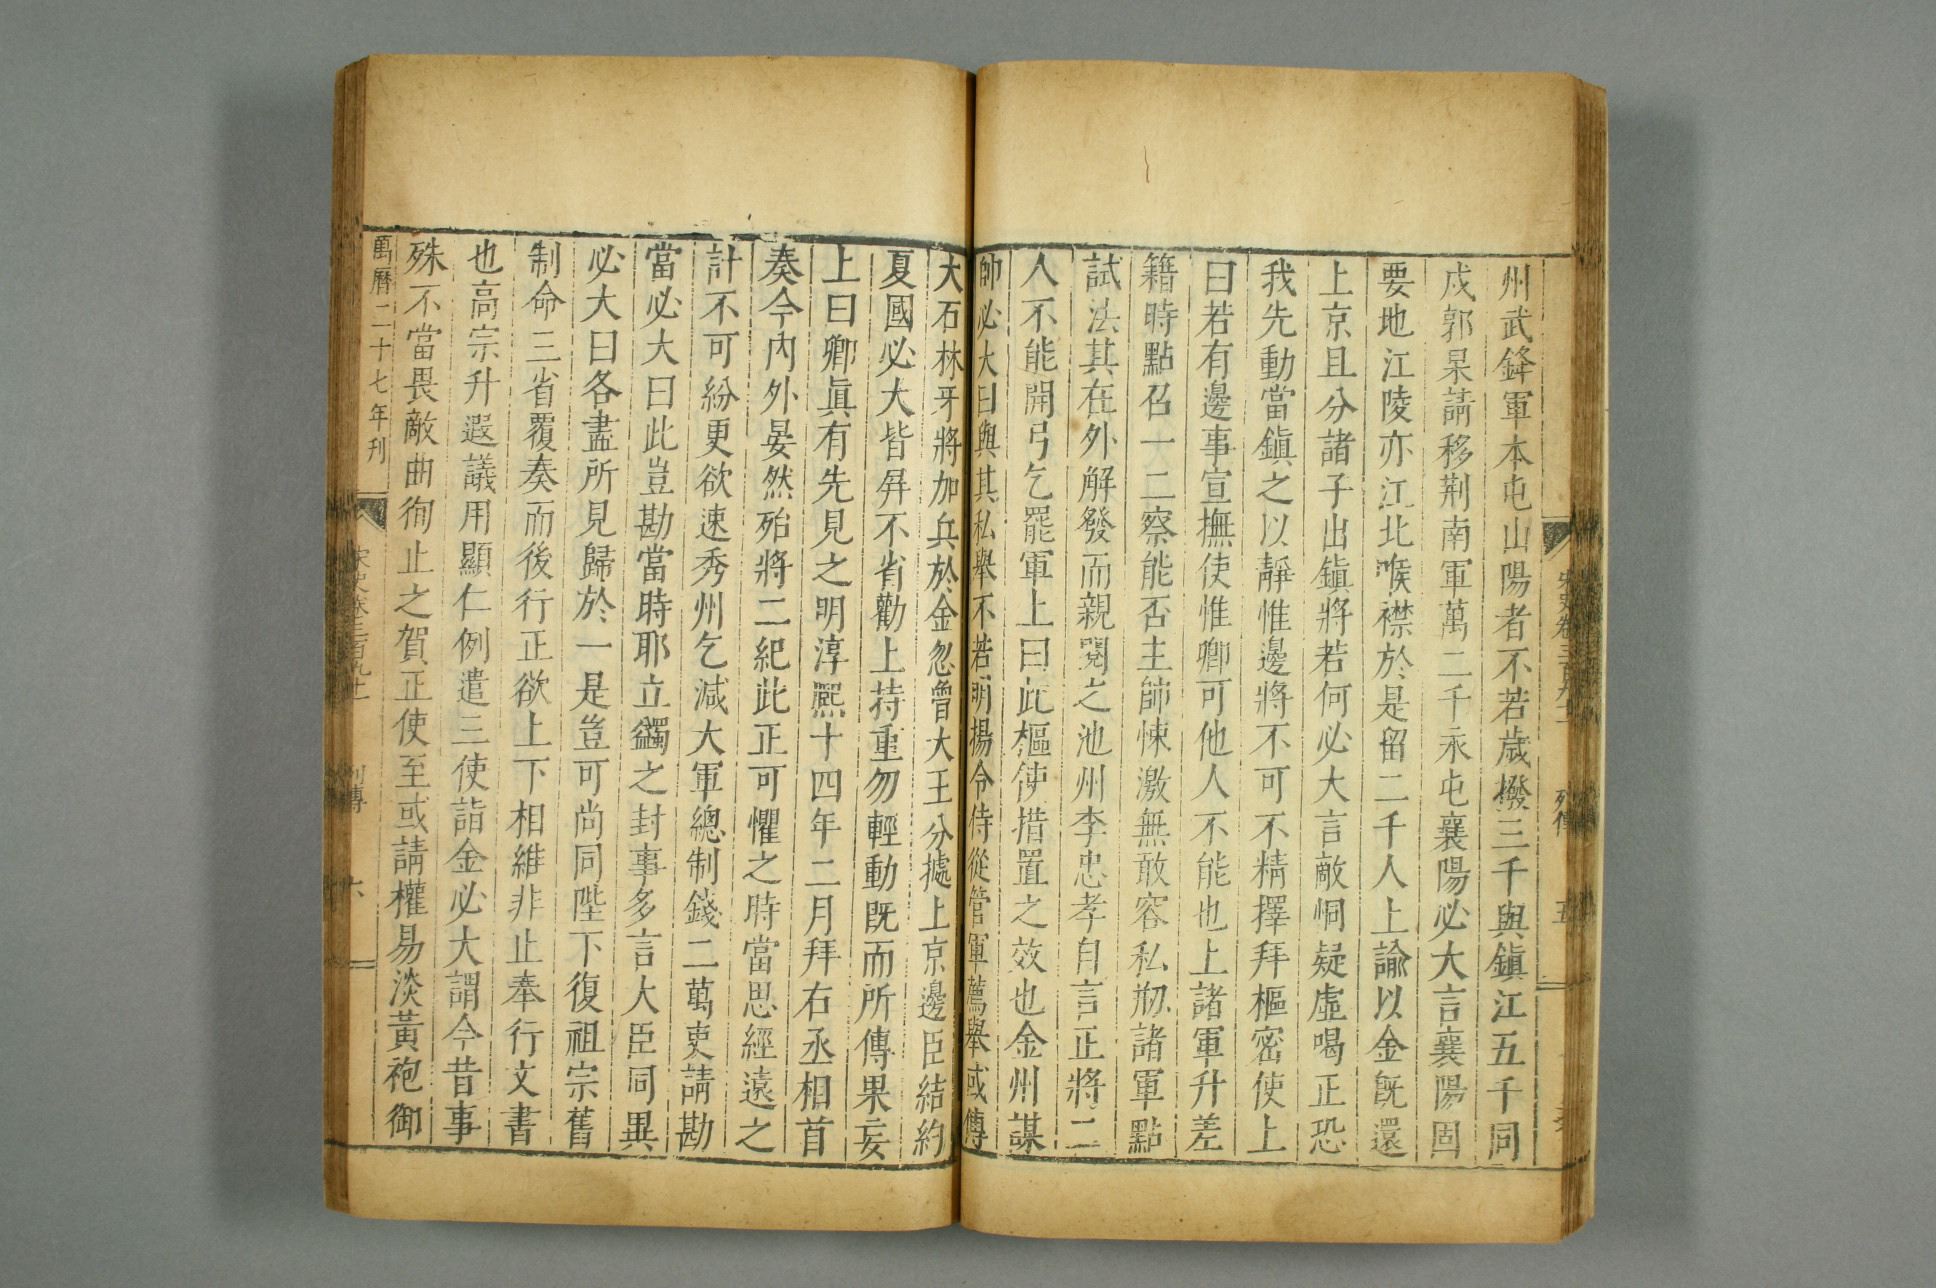 宋史卷三百九十一
列傳
五
州武鋒軍本屯山陽者不若歲撥三千與鎮江五千同
戍郭杲請移荆南軍萬二千永屯襄陽必大言襄陽固
要地江陵亦江北喉襟於是留二千人上諭以金既還
上京且分諸子出鎮將若何必大言敵恫疑虛喝正恐
我先動當鎭之以靜惟邊將不可不精擇拜樞密使上
曰若有邊事宣撫使惟卿可他人不能也上諸軍升差
籍時點召一二察能否主帥悚激無敢容私刱諸軍點
試法其在外解發而親閱之池州李忠孝自言正將二
人不能開弓乞罷軍上曰此樞使措置之效也金州謀
帥必大曰與其私舉不若明揚令侍從管軍薦舉或傳
大石林牙將加兵於金忽魯大王分㩀上京邊臣結約
夏國必大皆屏不省勸上持重勿輕動既而所傳果妄
上曰卿眞有先見之明淳熈十四年二月拜右丞相首
奏今內外晏然殆將二紀此正可懼之時當思經遠之
計不可紛更欲速秀州乞減大軍總制錢二萬吏請勘
當必大曰此豈勘當時耶立蠲之封事多言大臣同異
必大曰各盡所見歸於一是豈可尚同陛下復祖宗舊
制命三省覆奏而後行正欲上下相維非止奉行文書
也高宗升遐議用顯仁例遣三使詣金必大謂今昔事
殊不當畏敵曲徇止之賀正使至或請權易淡黃袍御
萬曆二十七年刊
宋史卷三百九十一
列傳
六